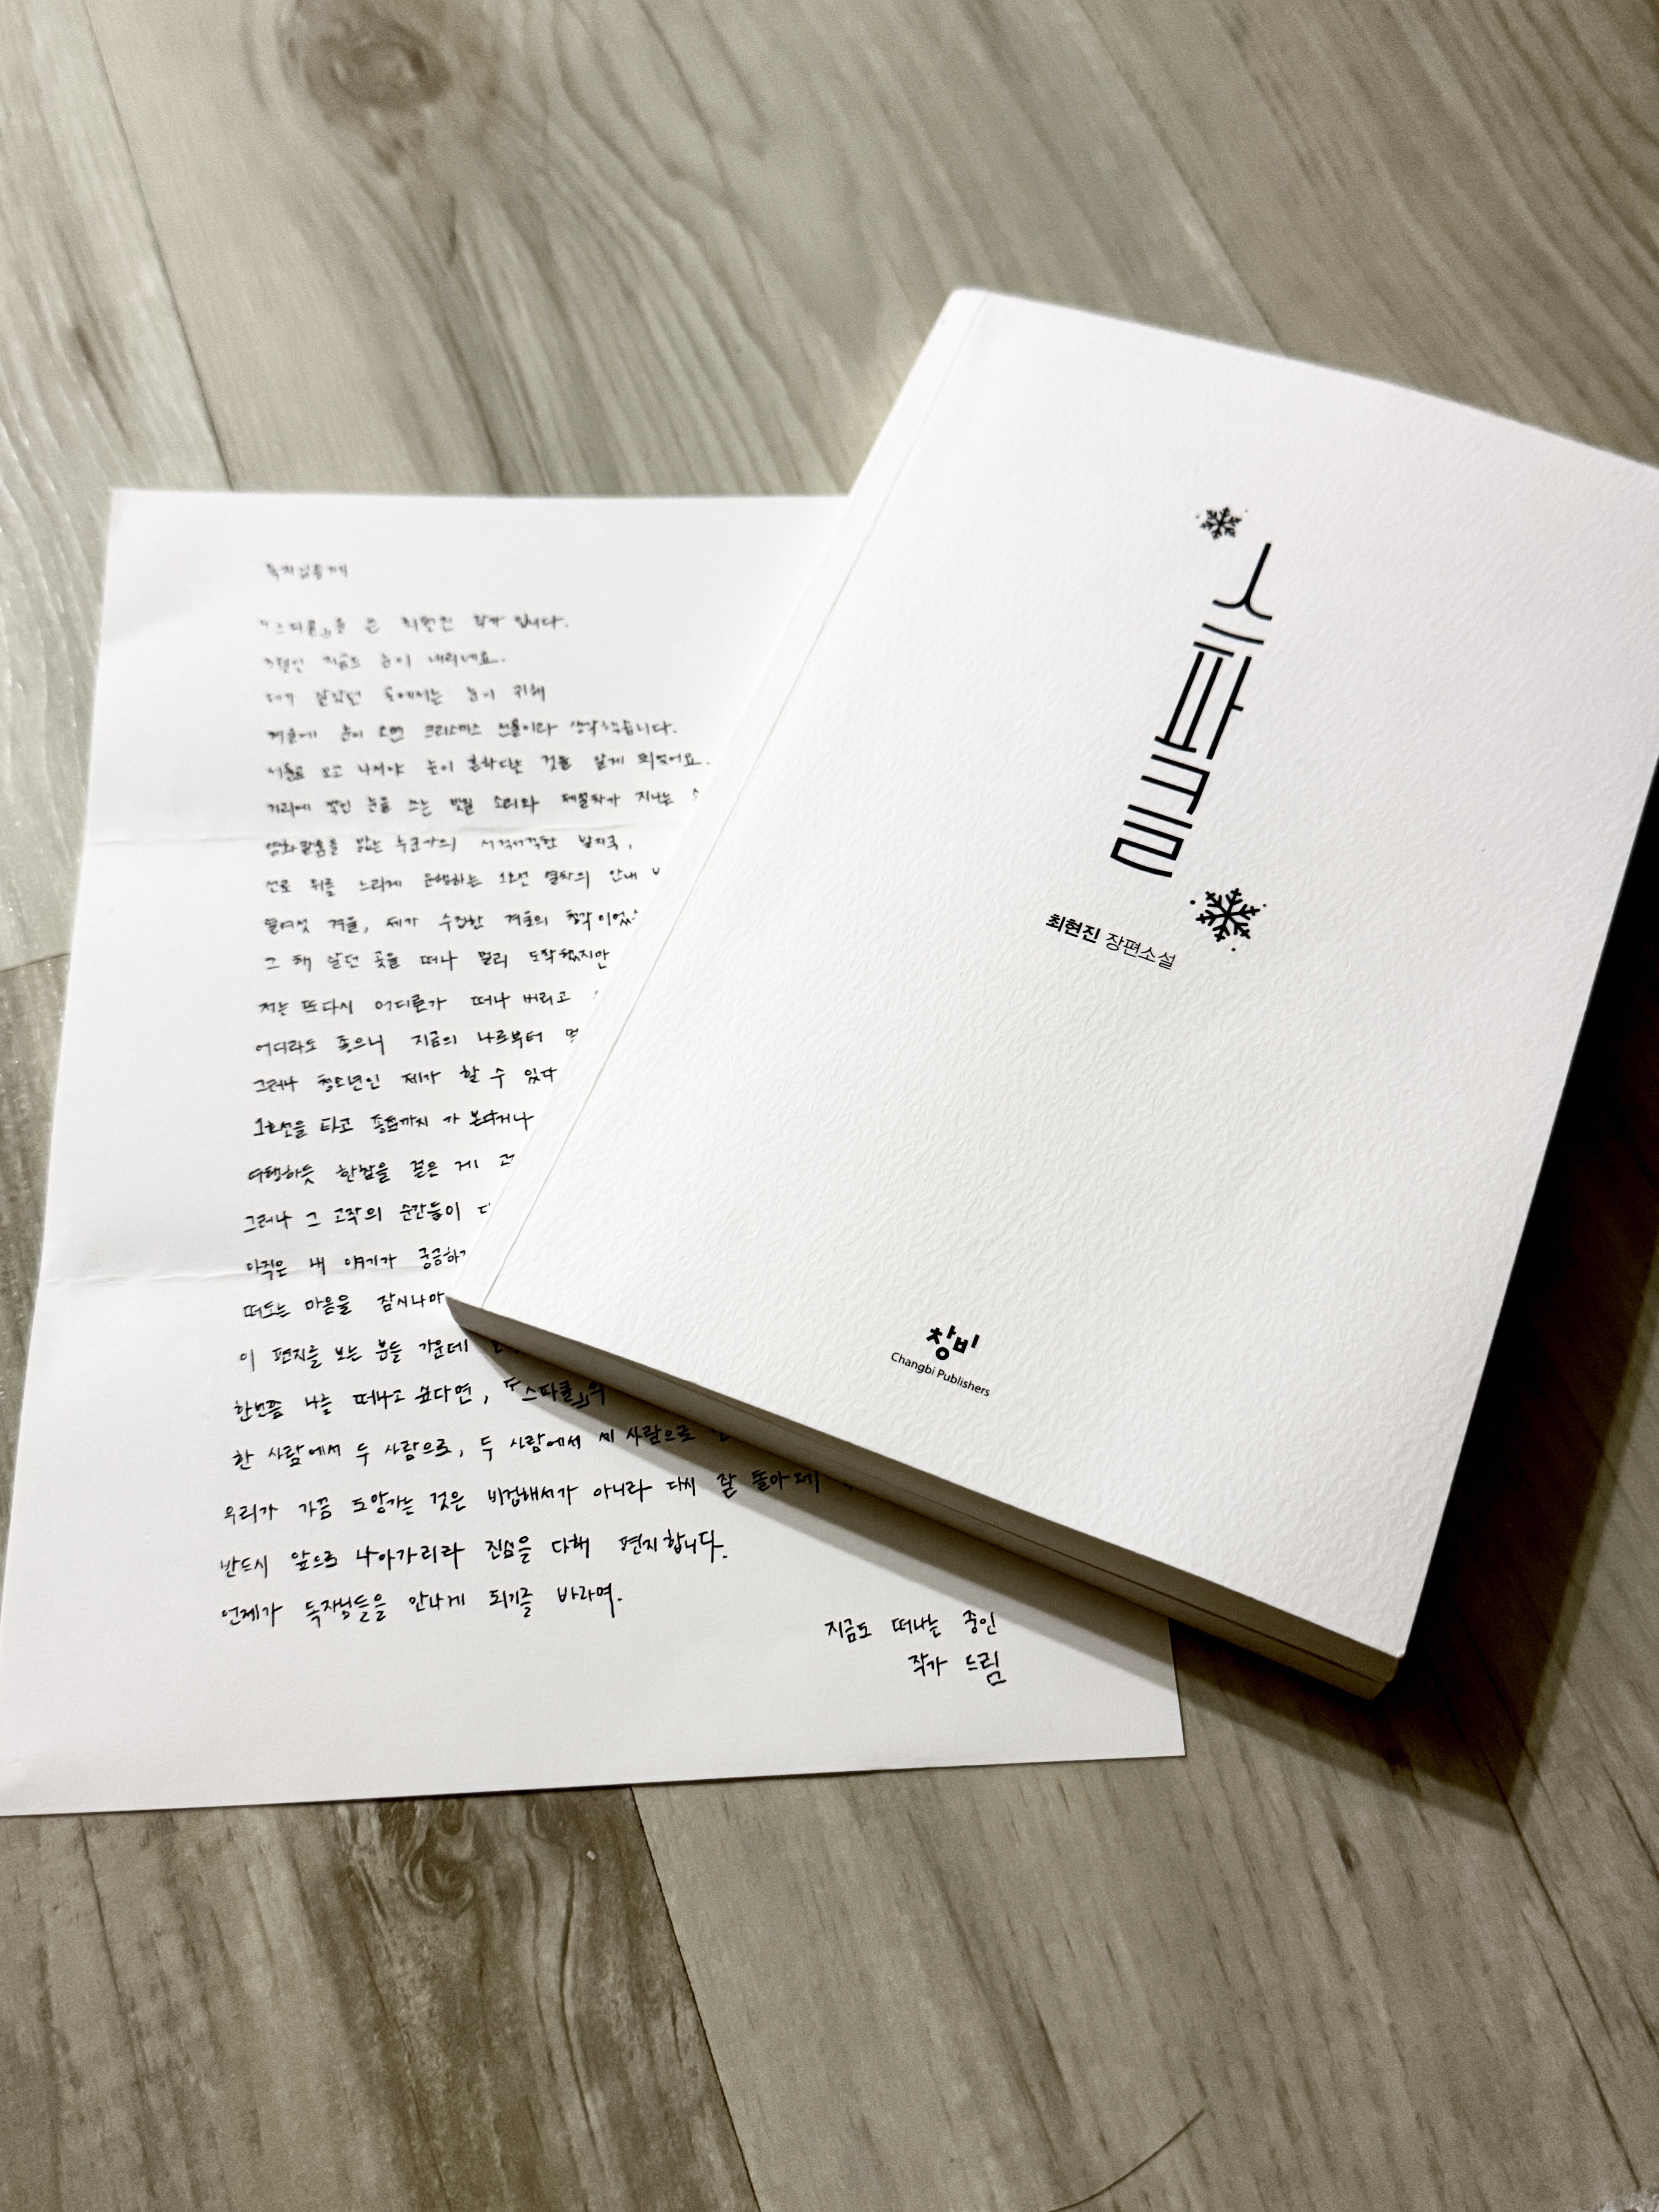 독자님들께
『스파클』을 쓴 최현진 작가입니다.
3월인 지금도 눈이 내리네요.
제가 살았던 곳에서는 눈이 귀해
겨울에 눈이 오면 크리스마스 선물이라 생각했습니다.
서울로 오고 나서야 눈이 흔하다는 것을 알게 되었어요.
거리에 쌓인 눈을 쓰는 빗질 소리와 제설차가 지나는
영화필름을 밟는 누군가의 서걱서걱한 발자국,
선로 위를 느리게 운행하는 1호선 열차의 안내
열여섯 겨울, 제가 수집한 겨울의 청각이었
그 해 살던 곳을 떠나 멀리 도착했지만
저는 또다시 어디론가 떠나 버리고
어디라도 좋으니 지금의 나로부터
그러나 청소년인 제가 할 수 있다
1호선을 타고 종점까지 가 본다거나
여행하듯 한참을 걸은 게 고
그러나 그 고작의 순간들이
아직은 내 얘기가 궁금하
떠도는 마음을 잠시나마
이 편지를 보는 분들 가운데
한번쯤 나를 떠나고 싶다면, 『스파클』의
한 사람에서 두 사람으로, 두 사람에서 세 사람으로
우리가 가끔 도망가는 것은 비겁해서가 아니라 다시 잘 돌아
반드시 앞으로 나아가리라 진심을 다해 편지합니다.
언젠가 독자님들을 만나게 되기를 바라며.
지금도 떠나는 중인
작가 드림
스파클
최현진 장편소설
창비
Changbi Publishers